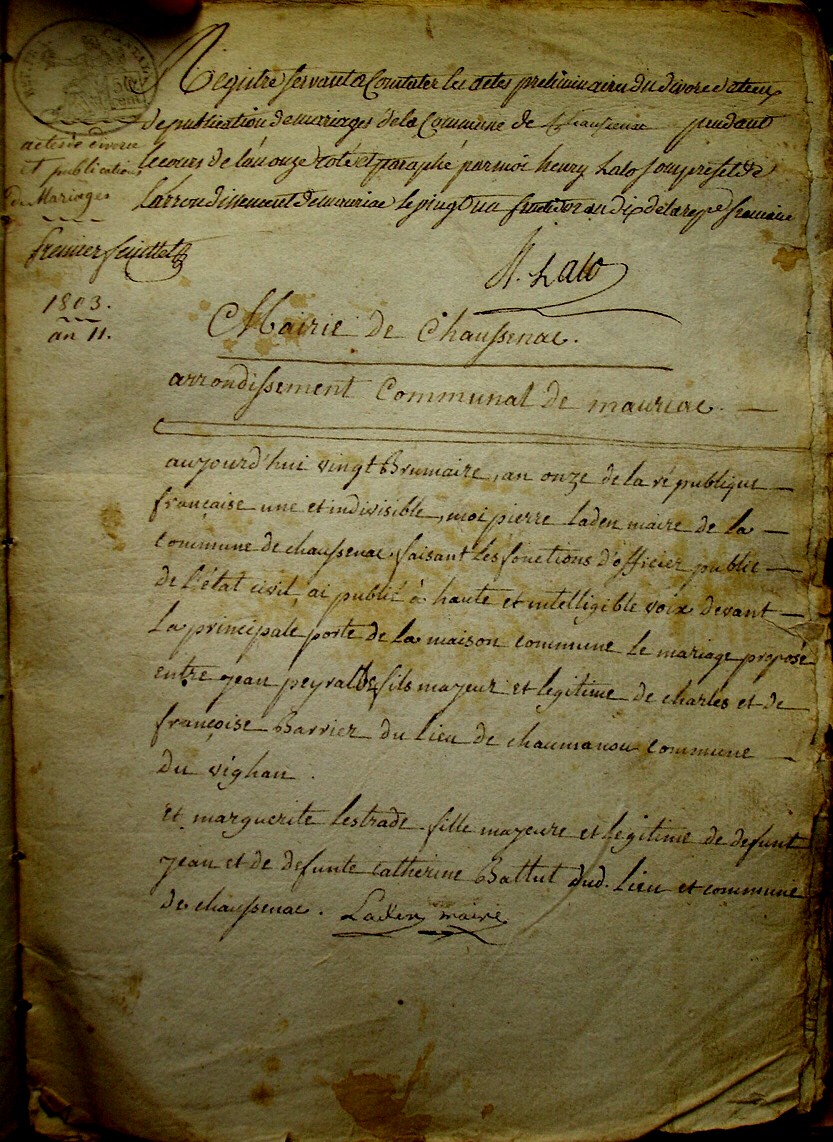 Registre servant a Constater les actes preliminaires du divorce et ceux
de publication de mariages de la Commune de Chaussenac pendant
le cours de l'an onze coté et paraphé par moi henry Lalo souprefet de
l'arrondissement de mauriac le vingt un fructidor an dix de la repe francaise
actes de divorce
et publication
du Mariages
premier feuillet
H. Lalo
1803.
an 11.
Mairie de Chaussenac.
arrondissement Communal de mauriac.
aujourd'hui vingt Brumaire, an onze de la république
française une et indivisible, moi pierre laden maire de la
commune de chaussenac faisant les fonctions d'officier public
de l'état civil, ai publié à haute et intelligible voix devant
la principale porte de la maison commune le mariage proposé
entre jean peyralbe fils majeur et legitime de charles et de
françoise Barrier du lieu de chaumanou commune
du vighan.
et marguerite lestrade fille majeure et legitime de defunt
jean et de defunte catherine Battut dud. lieu et commune
de chaussenac. Laden maire